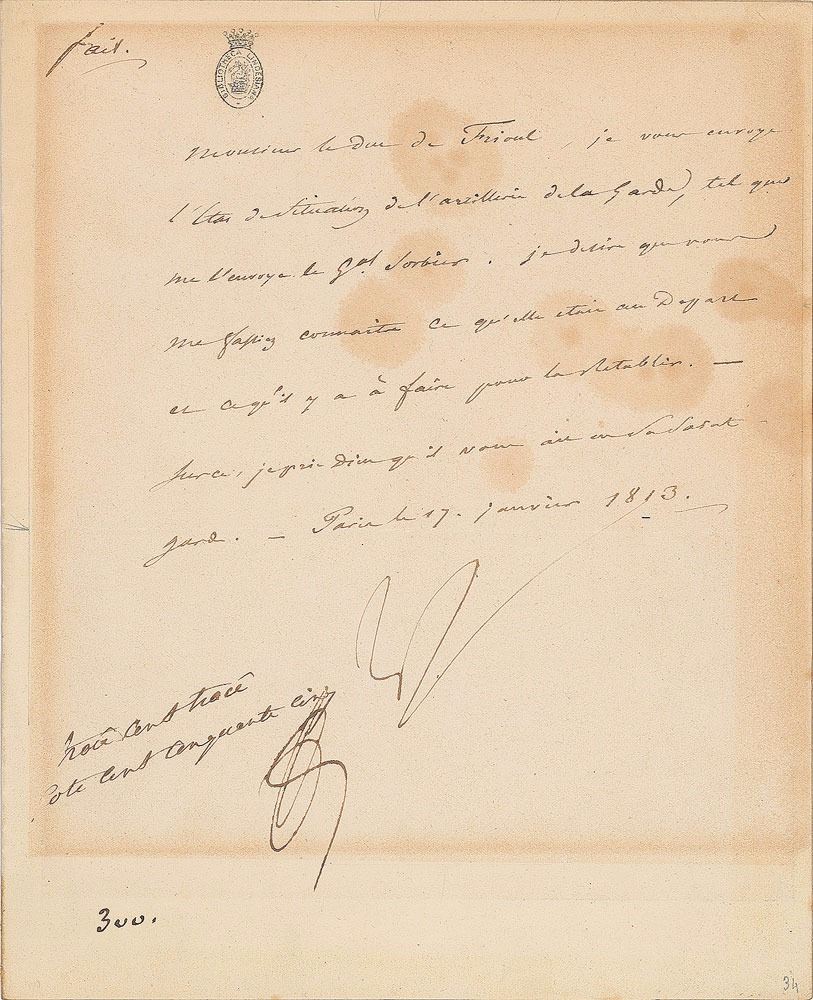 fait.
BIBLIOTHECA LINDESIANA
Monsieur le Duc de Frioul, je vous envoye
l'Etat de Situation de l'artillerie de la Garde, tel que
me l'envoye le Gal Sorbier. je desire que vous
me fassiez connaitre ce qu'elle etoit au Depart
et ce qu'il y a à faire pour la Retablir. —
Sur ce, je prie Dieu qu'il vous ait en Sa Sainte
garde. — Paris le 17. janvier 1813.
cent
cent cinquante cinq
300.
34